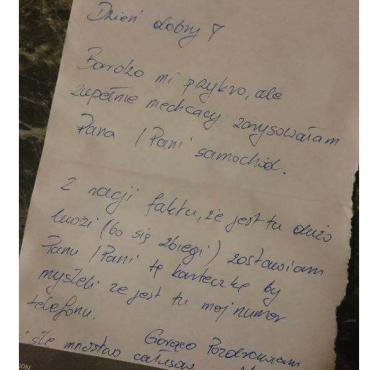 Dzień dobry!
Bardzo mi przykro, ale
zupełnie niechcący zarysowałam
Pana / Pani samochód.
Z racji faktu, że jest tu dużo
ludzi (bo się zbiegli) zostawiam
Panu / Pani tę karteczkę by
myśleli że jest tu mój numer
telefonu.
Gorąco Pozdrawiam
i ślę mnóstwo całusów
SON